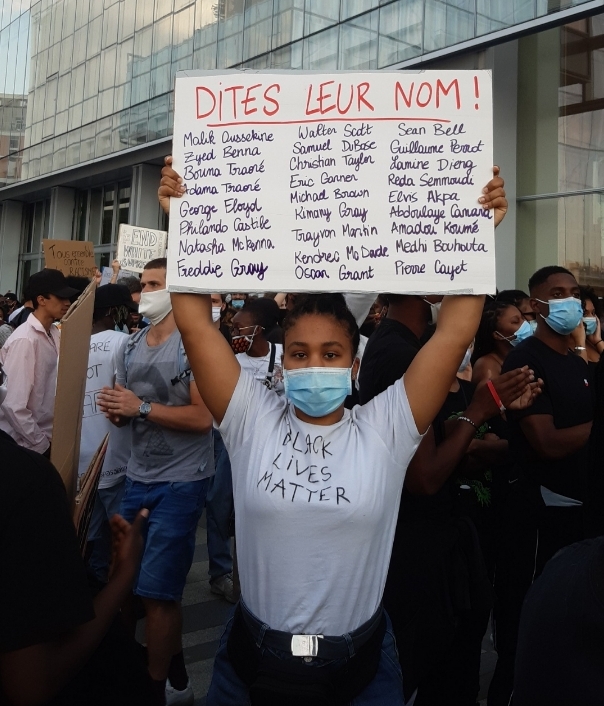 DITES LEUR NOM !
Malik Oussekine
Zyed Benna
Bouna Traoré
Adama Traoré
George Floyd
Philando Castile
Natasha McKenna
Freddie Gray
Walter Scott
Samuel DuBose
Christian Taylor
Eric Garner
Michael Brown
Kimany Gray
Trayvon Martin
Kendrec McDade
Oscar Grant
Sean Bell
Guillaume Perrot
Lamine Dieng
Reda Semmoudi
Elvis Akpa
Abdoulaye Camara
Amadou Koumé
Medhi Bouhouta
Pierre Cayet
BLACK
LIVES
MATTER
Tous ensemble
contre
END
ARE
NOT